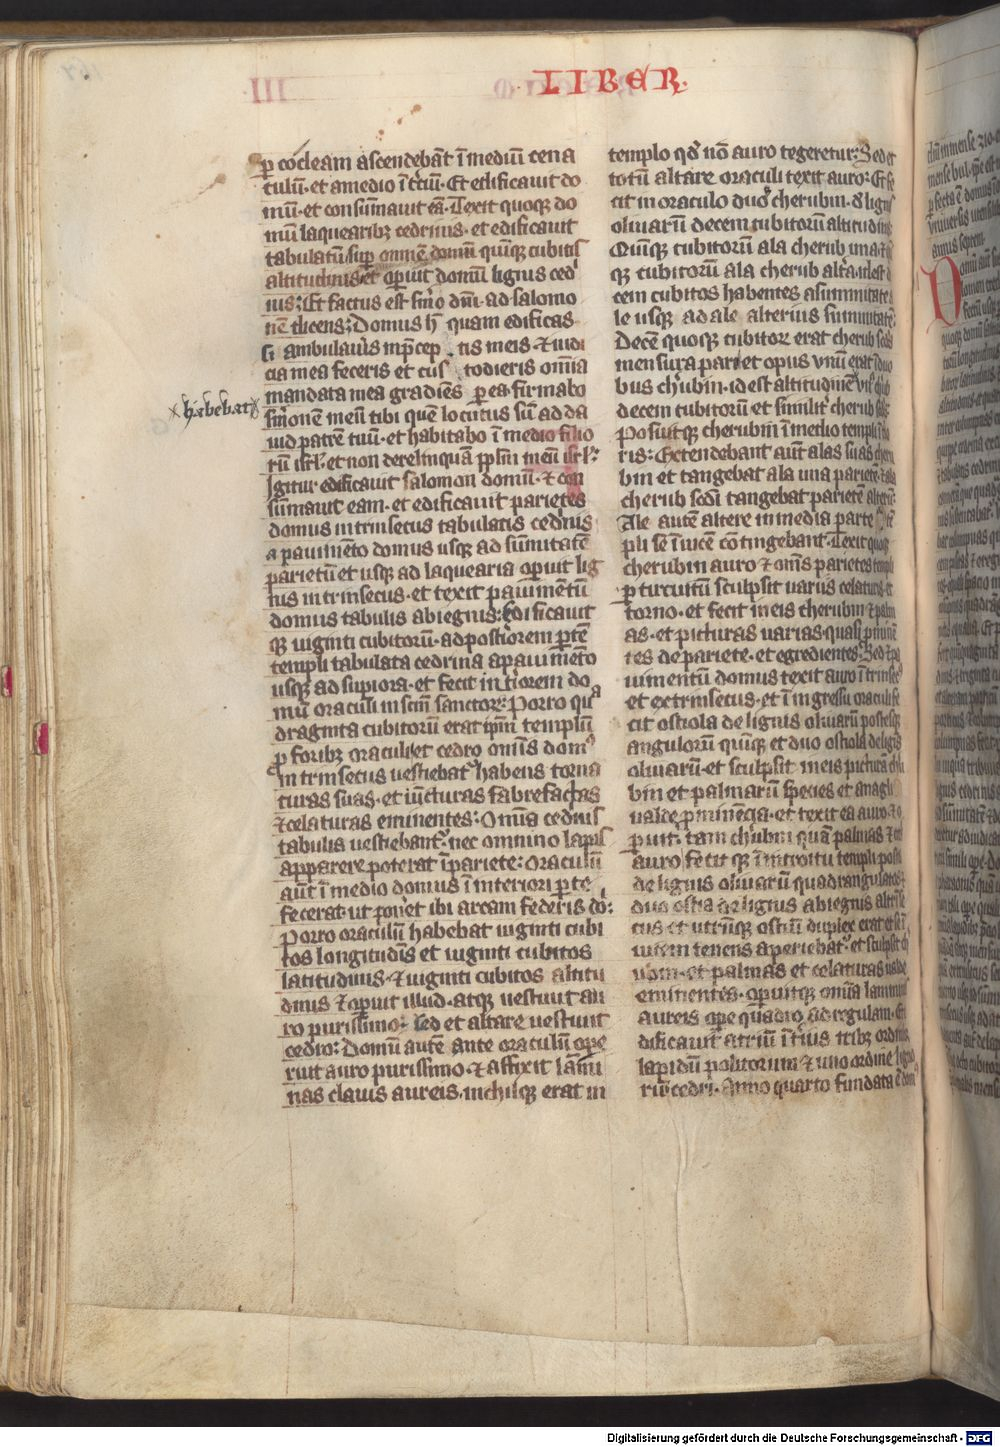 LIBER.
ꝑ cocleam ascendebāt ī mediū cena
culū· et a medio ī t̄ciū· Et edificauit do
mū· et consūmauit eā· Texit quoqꝫ do
mū laquearibꝫ cedrinis· et edificauit
tabulatū suꝑ omnē domū quīqꝫ cubitis
altitudinis et oꝑuit domū lignis ced
nis: Et factus est sermo dn̄i ad salomo
nē dicens: Domus hec quam edificas
si ambulaueris in p̄cep tis meis ⁊ iudi
cia mea feceris et cus todieris omīa
mandata mea gradiēs ꝑ ea· firmabo
habebat
sermonē meū tibi quē locutus sū ad da
uid patrē tuū· et habitabo ī medio filio
rū isrl̄· et non derelinquā pplm̄ meū isrl̄·
Igitur edificauit salomon domū· ⁊ con
sūmauit eam· et edificauit parietes
domus intrinsecus tabulatis cedrinis
a pauimēto domus usqꝫ ad sūmitatē
parietū et usqꝫ ad laquearia oꝑuit lig
nis intrinsecus· et texit pauimētū
domus tabulis abiegnis: Edificauit
qꝫ uiginti cubitorū· ad posteriorem ꝑtē
templi tabulata cedrina a pauimēto
usqꝫ ad superiora· et fecit interiorem do
mū oraculi in sc̄m sanctorꝫ: Porro qua
draginta cubitorū erat ip̄m templū
ꝓ foribꝫ oraculi· et cedro omīs domꝰ
intrinsecus uestiebat᷒ habens torna
turas suas· et iūcturas fabrefactas
⁊ celaturas eminentes: Omīa cedrinis
tabulis uestiebant᷒· nec omnino lapis
apparere poterat ī pariete: Oraculū
aūt ī medio domus ī interiori ꝑte
fecerat· ut poneret ibi arcam federis do:
Porro oraculū habebat uiginti cubi
tos longitudīs et uiginti cubitos
latitudinis· ⁊ uiginti cubitos altitu
dinis ⁊ oꝑuit illud· atqꝫ uestiuit au
ro purissimo· sed et altare uestiuit
cedro: Domū autē ante oraculū oꝑe
ruit auro purissimo· ⁊ affixit lāmi
nas clauis aureis· nichilqꝫ erat in
templo qd̓ nō auro tegeretur: Sed et
totū altare oraculi texit auro: Et fe
cit in oraculo duo cherubin· de lignis
oliuarū decem cubitorū altitudinis
Quīqꝫ cubitorū ala cherub una· ⁊
qꝫ cubitorū ala cherub altera· id est de
cem cubitos habentes a summitate a
le usqꝫ ad ale alterius summitatē
Decē quoqꝫ cubitor erat cherub secūdꝰ
mensura pari et opus unū erat ī duo
bus cherubin· id est altitudinē unꝰ cherub
decem cubitorū et similiter cherub
Posuitqꝫ cherubin ī medio templi
ris: Extendebant aūt alas suas cheru
bin et tangebat ala una parietē· ⁊ ala
cherub secdi tangebat parietē alterū:
Ale autē altere in media parte tē
pli se īuicē cōtingebant· Texit quoqꝫ
cherubin auro ⁊ omīs parietes templi
ꝑ circuitū sculpsit uariis celaturis et
torno· et fecit in eis cherubin ⁊ palm
as· et picturas uarias· quasi ꝓminē
tes de pariete· et egredientes: Sed ⁊ pa
uimentū domus texit auro ī trinsecꝰ
et extrinsecus· et ī ingressu oraculi fe
cit ostiola de lignis oliuarū postesqꝫ
angulorū quīqꝫ et duo ostiola de lignis
oliuarū· et sculpsit in eis picturā cheru
bin et palmarū species et anagli
ualde ꝓminēcia· et texit ea auro· ⁊ o
ꝑuit· tam cherubin quā palmas ⁊ cet
auro fecit qꝫ ī introitu templi postes
de lignis oliuarū quadrangulatos·
duo ostia de lignis abiegnis altrīse
cus et utrūqꝫ ostiū duplex erat et se ī
uicem tenens aperiebat᷒· et sculpsit ch
ubin· et palmas et celaturas ualde
eminentes· oꝑuitqꝫ omīa laminis
aureis oꝑe quadro ad regulam· Et e
dificauit atriū īterius tribꝫ ordinibꝫ
lapidū politorum ⁊ uno ordine ligno
rū cedri· Anno quarto fundata ē domꝰ
Digitalisierung gefördert durch die Deutsche Forschungsgemeinschaft - DFG